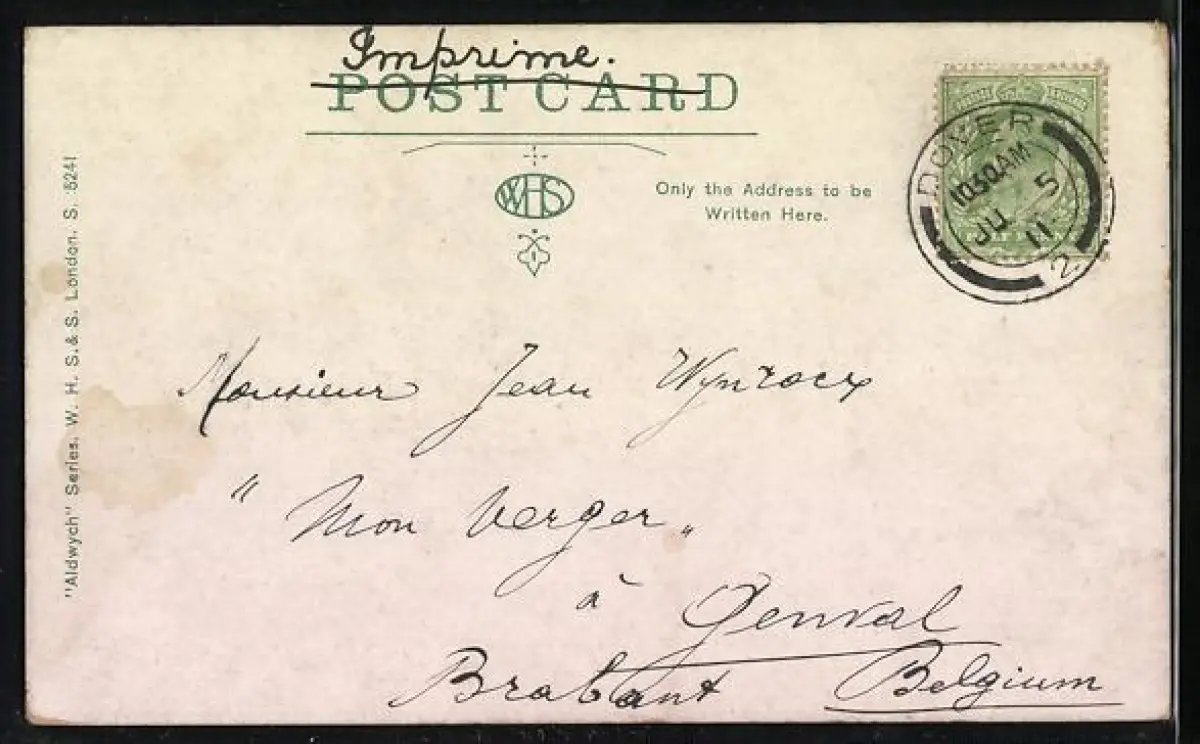 Imprime.
POST CARD
WHS
Only the Address to be
Written Here.
DOVER
10 30 AM
JU 5
11
2
HALF PENNY
"Aldwych" Series. W. H. S. & S. London. S. 5241
Monsieur Jean Wynrocx
"Mon Verger"
à Genval
Brabant Belgium